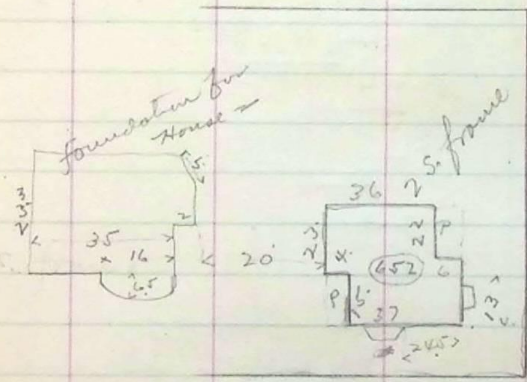 Foundation for
House
5.
3
3
2
35
16
6.5
2
20
2 S. frame
36
23.
22
P
4.
652
6
P
37
13
24.5